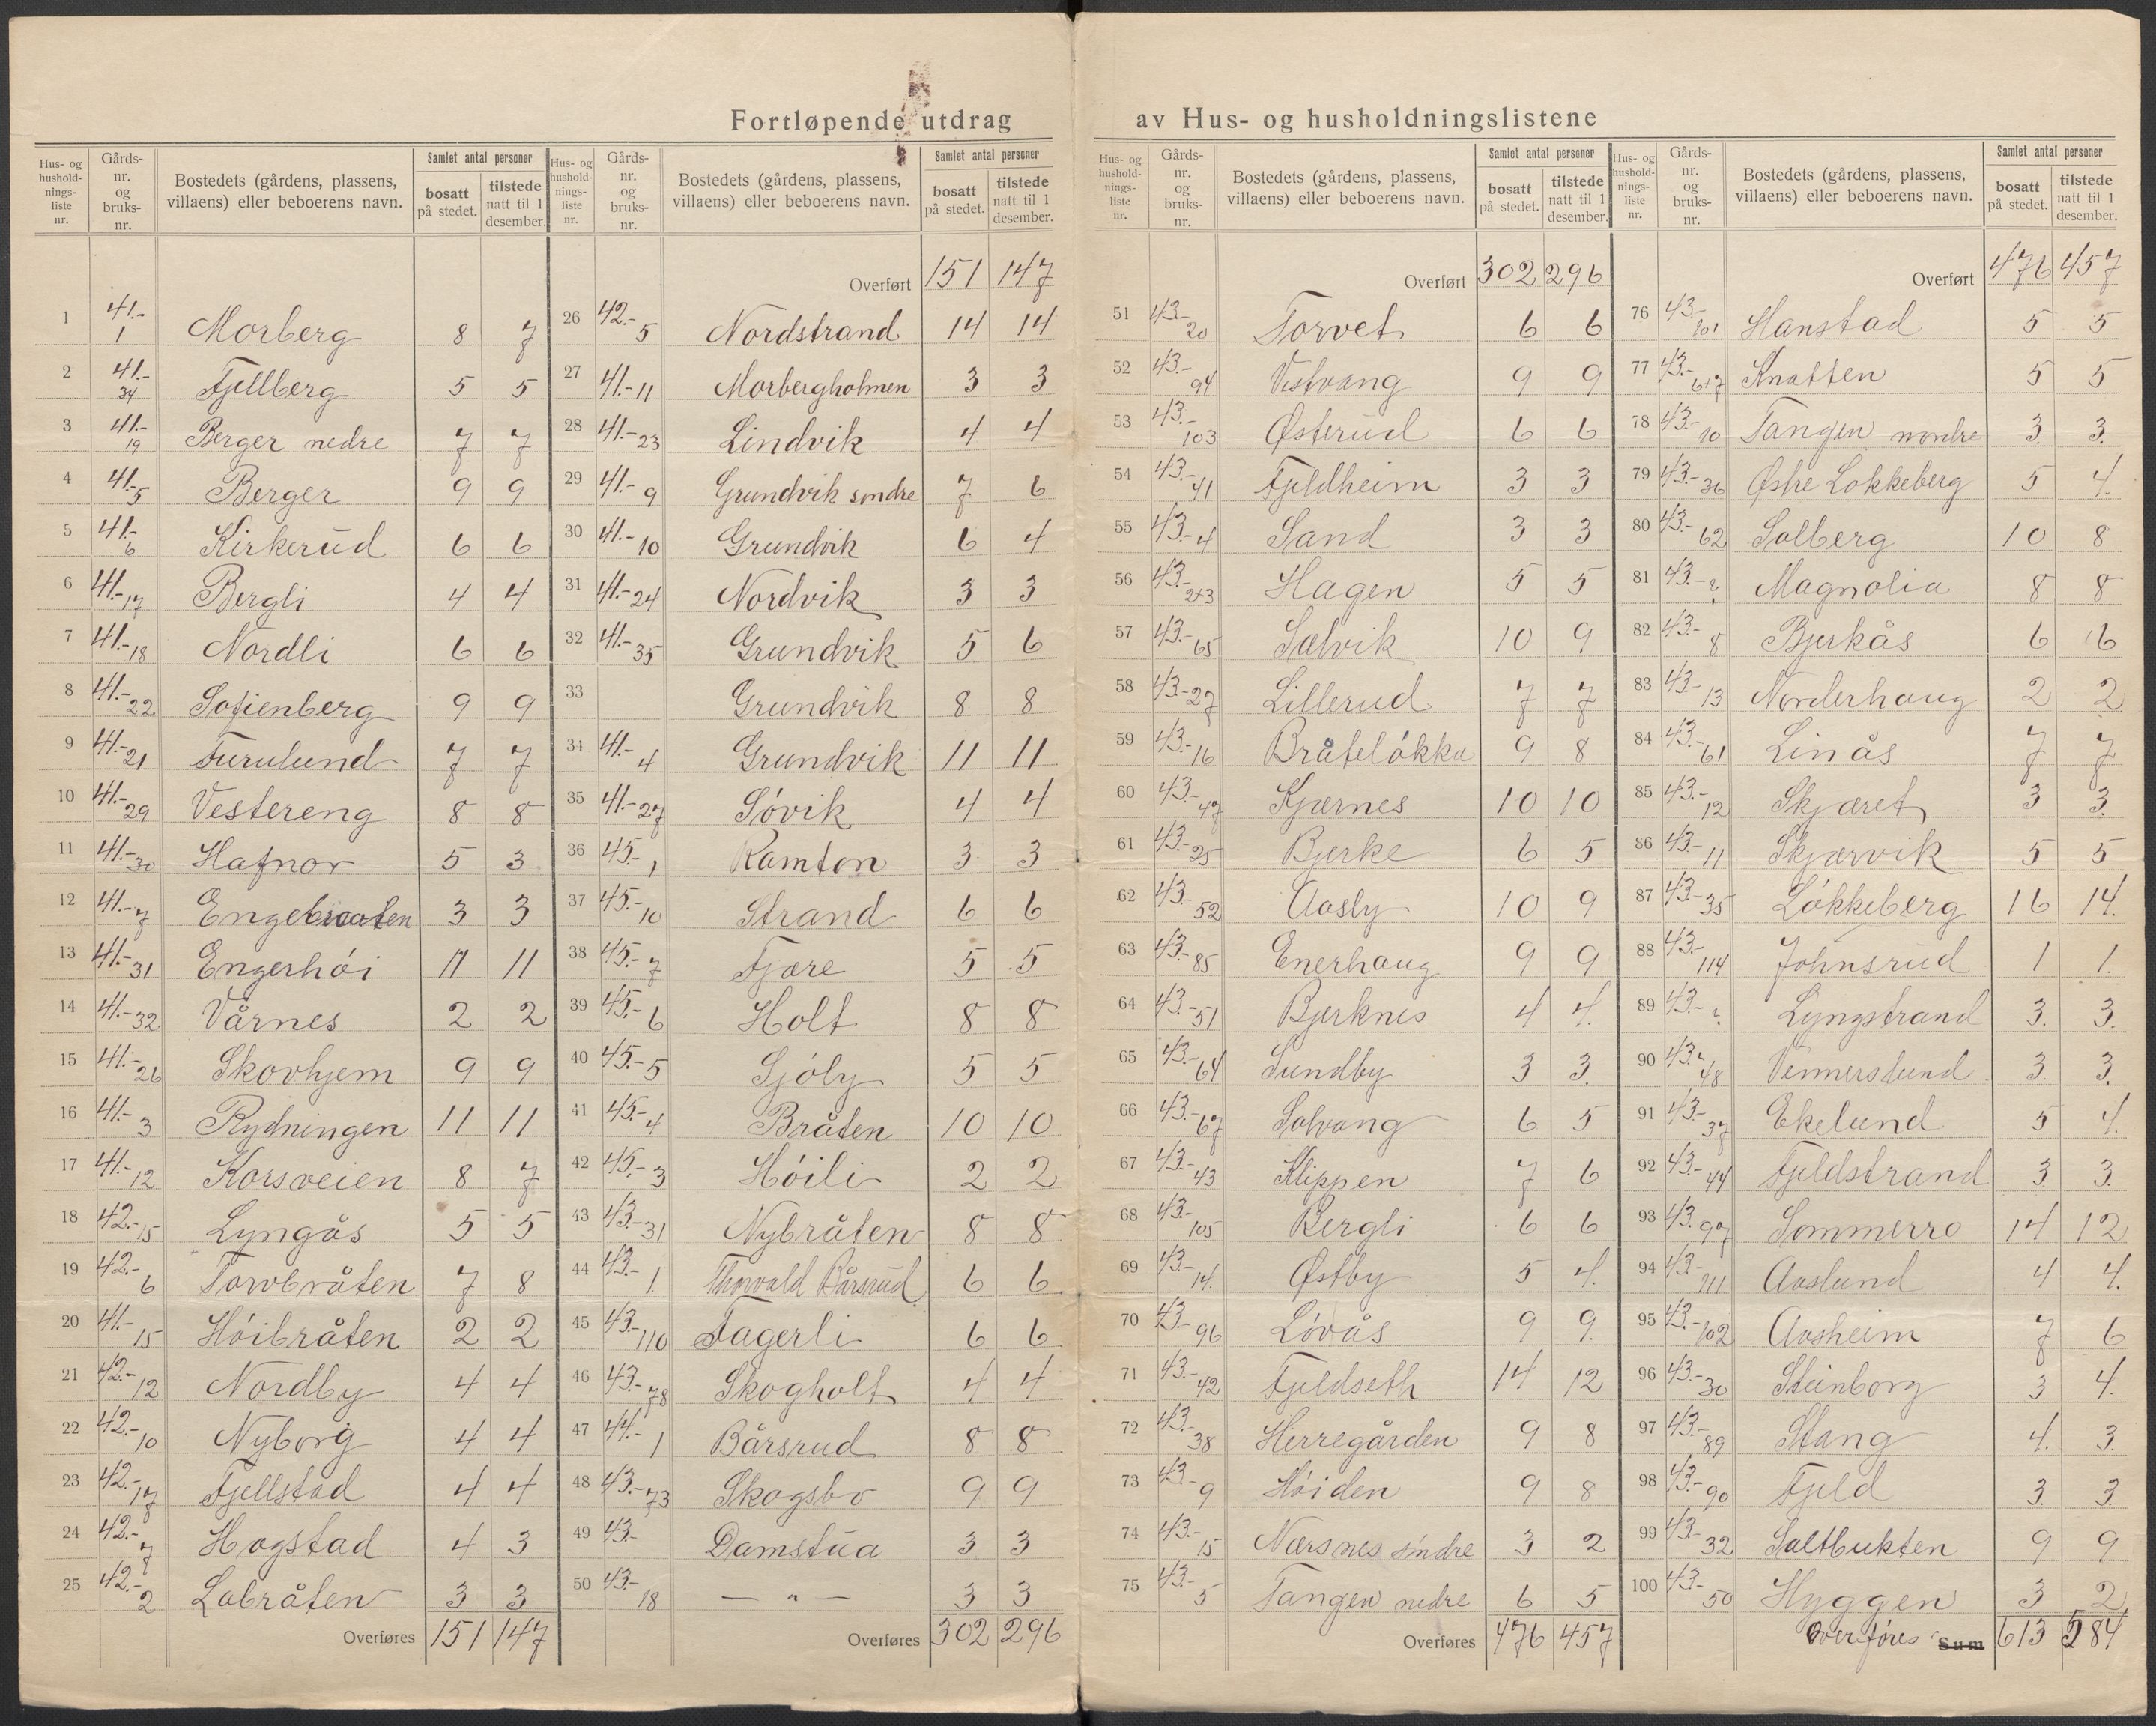 Fortløpende utdrag av Hus- og husholdningslistene
Hus- og husholdnings-liste nr. | Gårds-nr. og bruks-nr. | Bostedets (gårdens, plassens, villaens) eller beboerens navn. | Samlet antal personer bosatt på stedet. | tilstede natt til 1 desember.
1 41.-1 Morberg 8 7
2 41.-34 Fjellberg 5 5
3 41.-19 Berger nedre 7 7
4 41.-5 Berger 9 9
5 41.-6 Kirkerud 6 6
6 41.-17 Bergli 4 4
7 41.-18 Nordli 6 6
8 41.-22 Sofienberg 9 9
9 41.-21 Furulund 7 7
10 41.-29 Vestereng 8 8
11 41.-30 Hafnor 5 3
12 41.-7 Engebraaten 3 3
13 41.-31 Engerhói 11 11
14 41.-32 Vårnes 2 2
15 41.-26 Skovhjem 9 9
16 41.-3 Rydningen 11 11
17 41.-12 Korsveien 8 7
18 42.-15 Lyngås 5 5
19 42.-6 Torvbråten 7 8
20 41.-15 Hóibråten 2 2
21 42.-12 Nordby 4 4
22 42.-10 Nyborg 4 4
23 42.-17 Fjellstad 4 4
24 42.-7 Hogstad 4 3
25 42.-2 Labråten 3 3
Overføres 151 147
Hus- og husholdnings-liste nr. | Gårds-nr. og bruks-nr. | Bostedets (gårdens, plassens, villaens) eller beboerens navn. | Samlet antal personer bosatt på stedet. | tilstede natt til 1 desember.
Overført 151 147
26 42.-5 Nordstrand 14 14
27 41.-11 Morbergholmen 3 3
28 41.-23 Lindvik 4 4
29 41.-9 Grundvik sondre 7 6
30 41.-10 Grundvik 6 4
31 41.-24 Nordvik 3 3
32 41.-35 Grundvik 5 6
33 Grundvik 8 8
34 41.-4 Grundvik 11 11
35 41.-27 Sóvik 4 4
36 45.-1 Ramton 3 3
37 45.-10 Strand 6 6
38 45.-7 Fjære 5 5
39 45.-6 Holt 8 8
40 45.-5 Sjóly 5 5
41 45.-4 Bråten 10 10
42 45.-3 Hóili 2 2
43 43.-31 Nybråten 8 8
44 43.-1 Thorvald Bårsrud 6 6
45 43.-110 Fagerli 6 6
46 43.-78 Skogholt 4 4
47 44.-1 Bårsrud 8 8
48 43.-73 Skogsbo 9 9
49 43.- Damstua 3 3
50 43.-18 — " — 3 3
Overføres 302 296
Hus- og husholdnings-liste nr. | Gårds-nr. og bruks-nr. | Bostedets (gårdens, plassens, villaens) eller beboerens navn. | Samlet antal personer bosatt på stedet. | tilstede natt til 1 desember.
Overført 302 296
51 43.-20 Torvet 6 6
52 43.-94 Vestvang 9 9
53 43.-103 Østerud 6 6
54 43.-41 Fjeldheim 3 3
55 43.-4 Sand 3 3
56 43.-2+3 Hagen 5 5
57 43.-65 Solvik 10 9
58 43.-27 Lillerud 7 7
59 43.-16 Bråtelókka 9 8
60 43.-47 Kjærnes 10 10
61 43.-25 Bjerke 6 5
62 43.-52 Aasly 10 9
63 43.-85 Enerhaug 9 9
64 43.-51 Bjerknes 4 4.
65 43.-64 Sundby 3 3.
66 43.-67 Solvang 6 5
67 43.-43 Klippen 7 6
68 43.-105 Bergli 6 6
69 43.-14. Østby 5 4.
70 43.-96 Lóvås 9 9.
71 43.-42 Fjeldseth 14 12
72 43.-38 Herregården 9 8
73 43.-9 Hóiden 9 8
74 43.-15 Nærsnes sóndre 3 2
75 43.-5 Tangen nedre 6 5
Overføres 476 457
Hus- og husholdnings-liste nr. | Gårds-nr. og bruks-nr. | Bostedets (gårdens, plassens, villaens) eller beboerens navn. | Samlet antal personer bosatt på stedet. | tilstede natt til 1 desember.
Overført 476 457
76 43.-101 Hanstad 5 5
77 43.-6+7 Knatten 5 5
78 43.-10 Tangen nordre 3. 3.
79 43.-36 Østre Lokkeberg 5 4.
80 43.-62 Solberg 10 8
81 43.-? Magnolia 8 8
82 43.-8 Bjerkås 6 6
83 43.-13 Norderhaug 2 2
84 43.-61 Linås 7 7
85 43.-12 Skjæret 3 3.
86 43.-11 Skjærvik 5 5
87 43.-35 Lókkeberg 16 14.
88 43.-114 Johnsrud 1 1.
89 43.-? Lyngstrand 3. 3.
90 43.-48 Vennerslund 3. 3.
91 43.-37 Ekelund 5 4.
92 43.-44 Fjeldstrand 3 3.
93 43.97 Sommerro 14 12
94 43.-111 Aaslund 4 4.
95 43.-102 Aasheim 7 6
96 43.-30 Steinborg 3 4.
97 43.-89 Stang 4. 3.
98 43.-90 Fjeld 3. 3.
99 43.-32 Saltbukten 9 9
100 43.-50 Hyggen 3 2
Overføres Sum 613 584